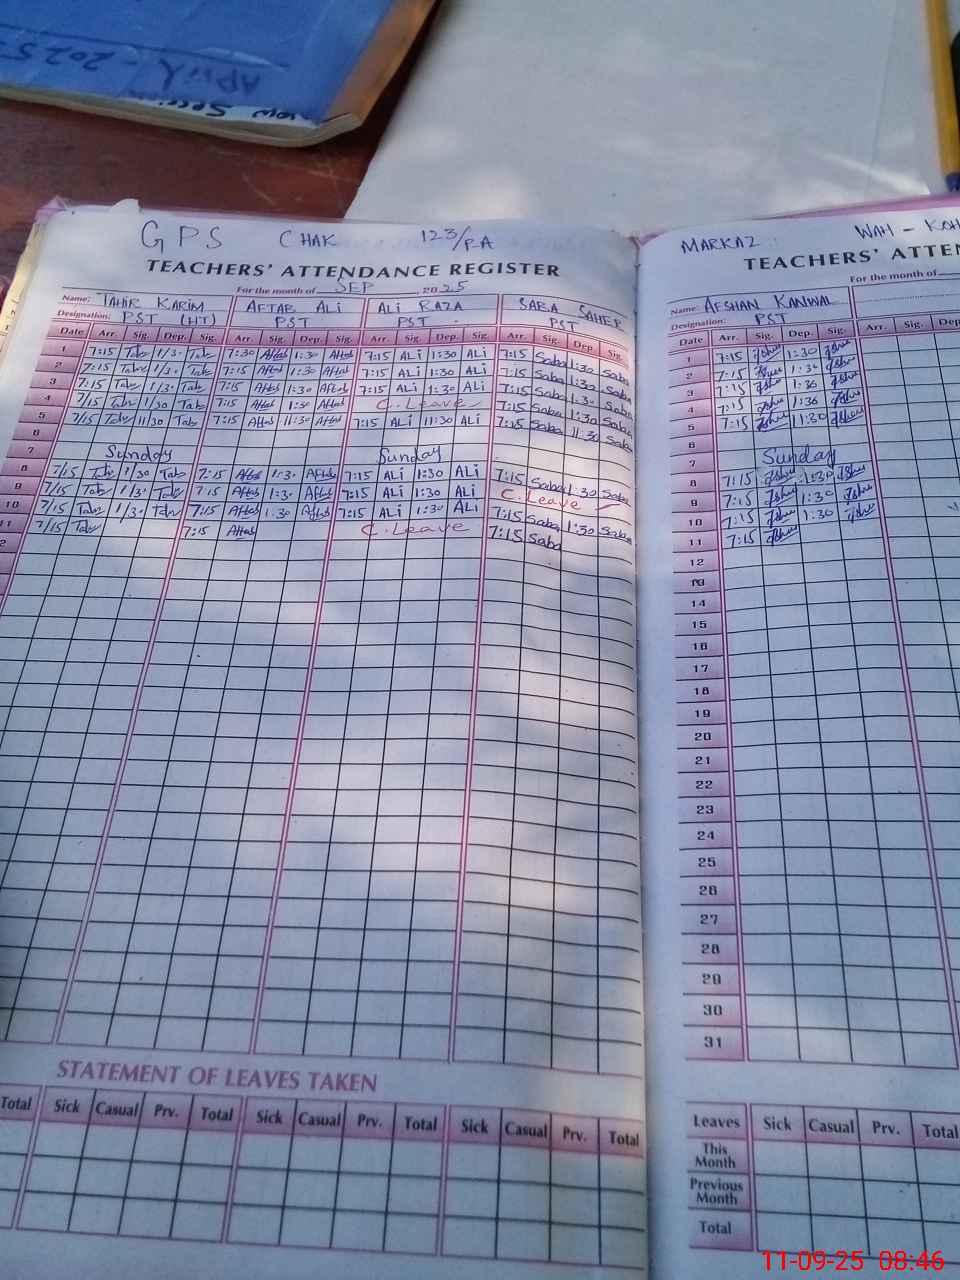 APRIL - 2025
New Session
GPS CHAK 123/P.A
TEACHERS' ATTENDANCE REGISTER
For the month of SEP 2025
Name: TAHIR KARIM AFTAB ALI ALI RAZA SABA SAHER
Designation: PST (HT) PST PST PST
Date Arr. Sig. Dep. Sig. Arr. Sig. Dep. Sig. Arr. Sig. Dep. Sig. Arr. Sig. Dep. Sig.
1 7:15 Tab 1/30 Tab 7:30 Aftab 1:30 Aftab 7:15 ALi 1:30 ALi 7:15 Saba 1:30 Saba
2 7:15 Tab 1/30 Tab 7:15 Aftab 1:30 Aftab 7:15 ALi 1:30 ALi 7:15 Saba 1:30 Saba
3 7:15 Tab 1/30 Tab 7:15 Aftab 1:30 Aftab 7:15 ALi 1:30 ALi 7:15 Saba 1:30 Saba
4 7/15 Tab 1/30 Tab 7:15 Aftab 1:30 Aftab C.Leave 7:15 Saba 1:30 Saba
5 7/15 Tab 11/30 Tab 7:15 Aftab 11:30 Aftab 7:15 ALi 11:30 ALi 7:15 Saba 11:30 Saba
6
7 Sunday Sunday
8 7/15 Tab 1/30 Tab 7:15 Aftab 1:30 Aftab 7:15 ALi 1:30 ALi 7:15 Saba 1:30 Saba
9 7/15 Tab 1/30 Tab 7:15 Aftab 1:30 Aftab 7:15 ALi 1:30 ALi C.Leave
10 7/15 Tab 1/30 Tab 7:15 Aftab 1:30 Aftab 7:15 ALi 1:30 ALi 7:15 Saba 1:30 Saba
11 7/15 Tab 7:15 Aftab C.Leave 7:15 Saba
STATEMENT OF LEAVES TAKEN
Total Sick Casual Prv. Total Sick Casual Prv. Total Sick Casual Prv. Total
MARKAZ : WAH - KOH
TEACHERS' ATTEN
For the month of
Name: AFSHAN KANWAL
Designation: PST
Date Arr. Sig. Dep. Sig. Arr. Sig. Dep
1 7:15 1:30
2 7:15 1:30
3 7:15 1:30
4 7:15 1:30
5 7:15 11:30
6
7 Sunday
8 7:15 1:30
9 7:15 1:30
10 7:15 1:30
11 7:15
12
13
14
15
16
17
18
19
20
21
22
23
24
25
26
27
28
29
30
31
Leaves Sick Casual Prv. Total
This Month
Previous Month
Total
11-09-25 08:46